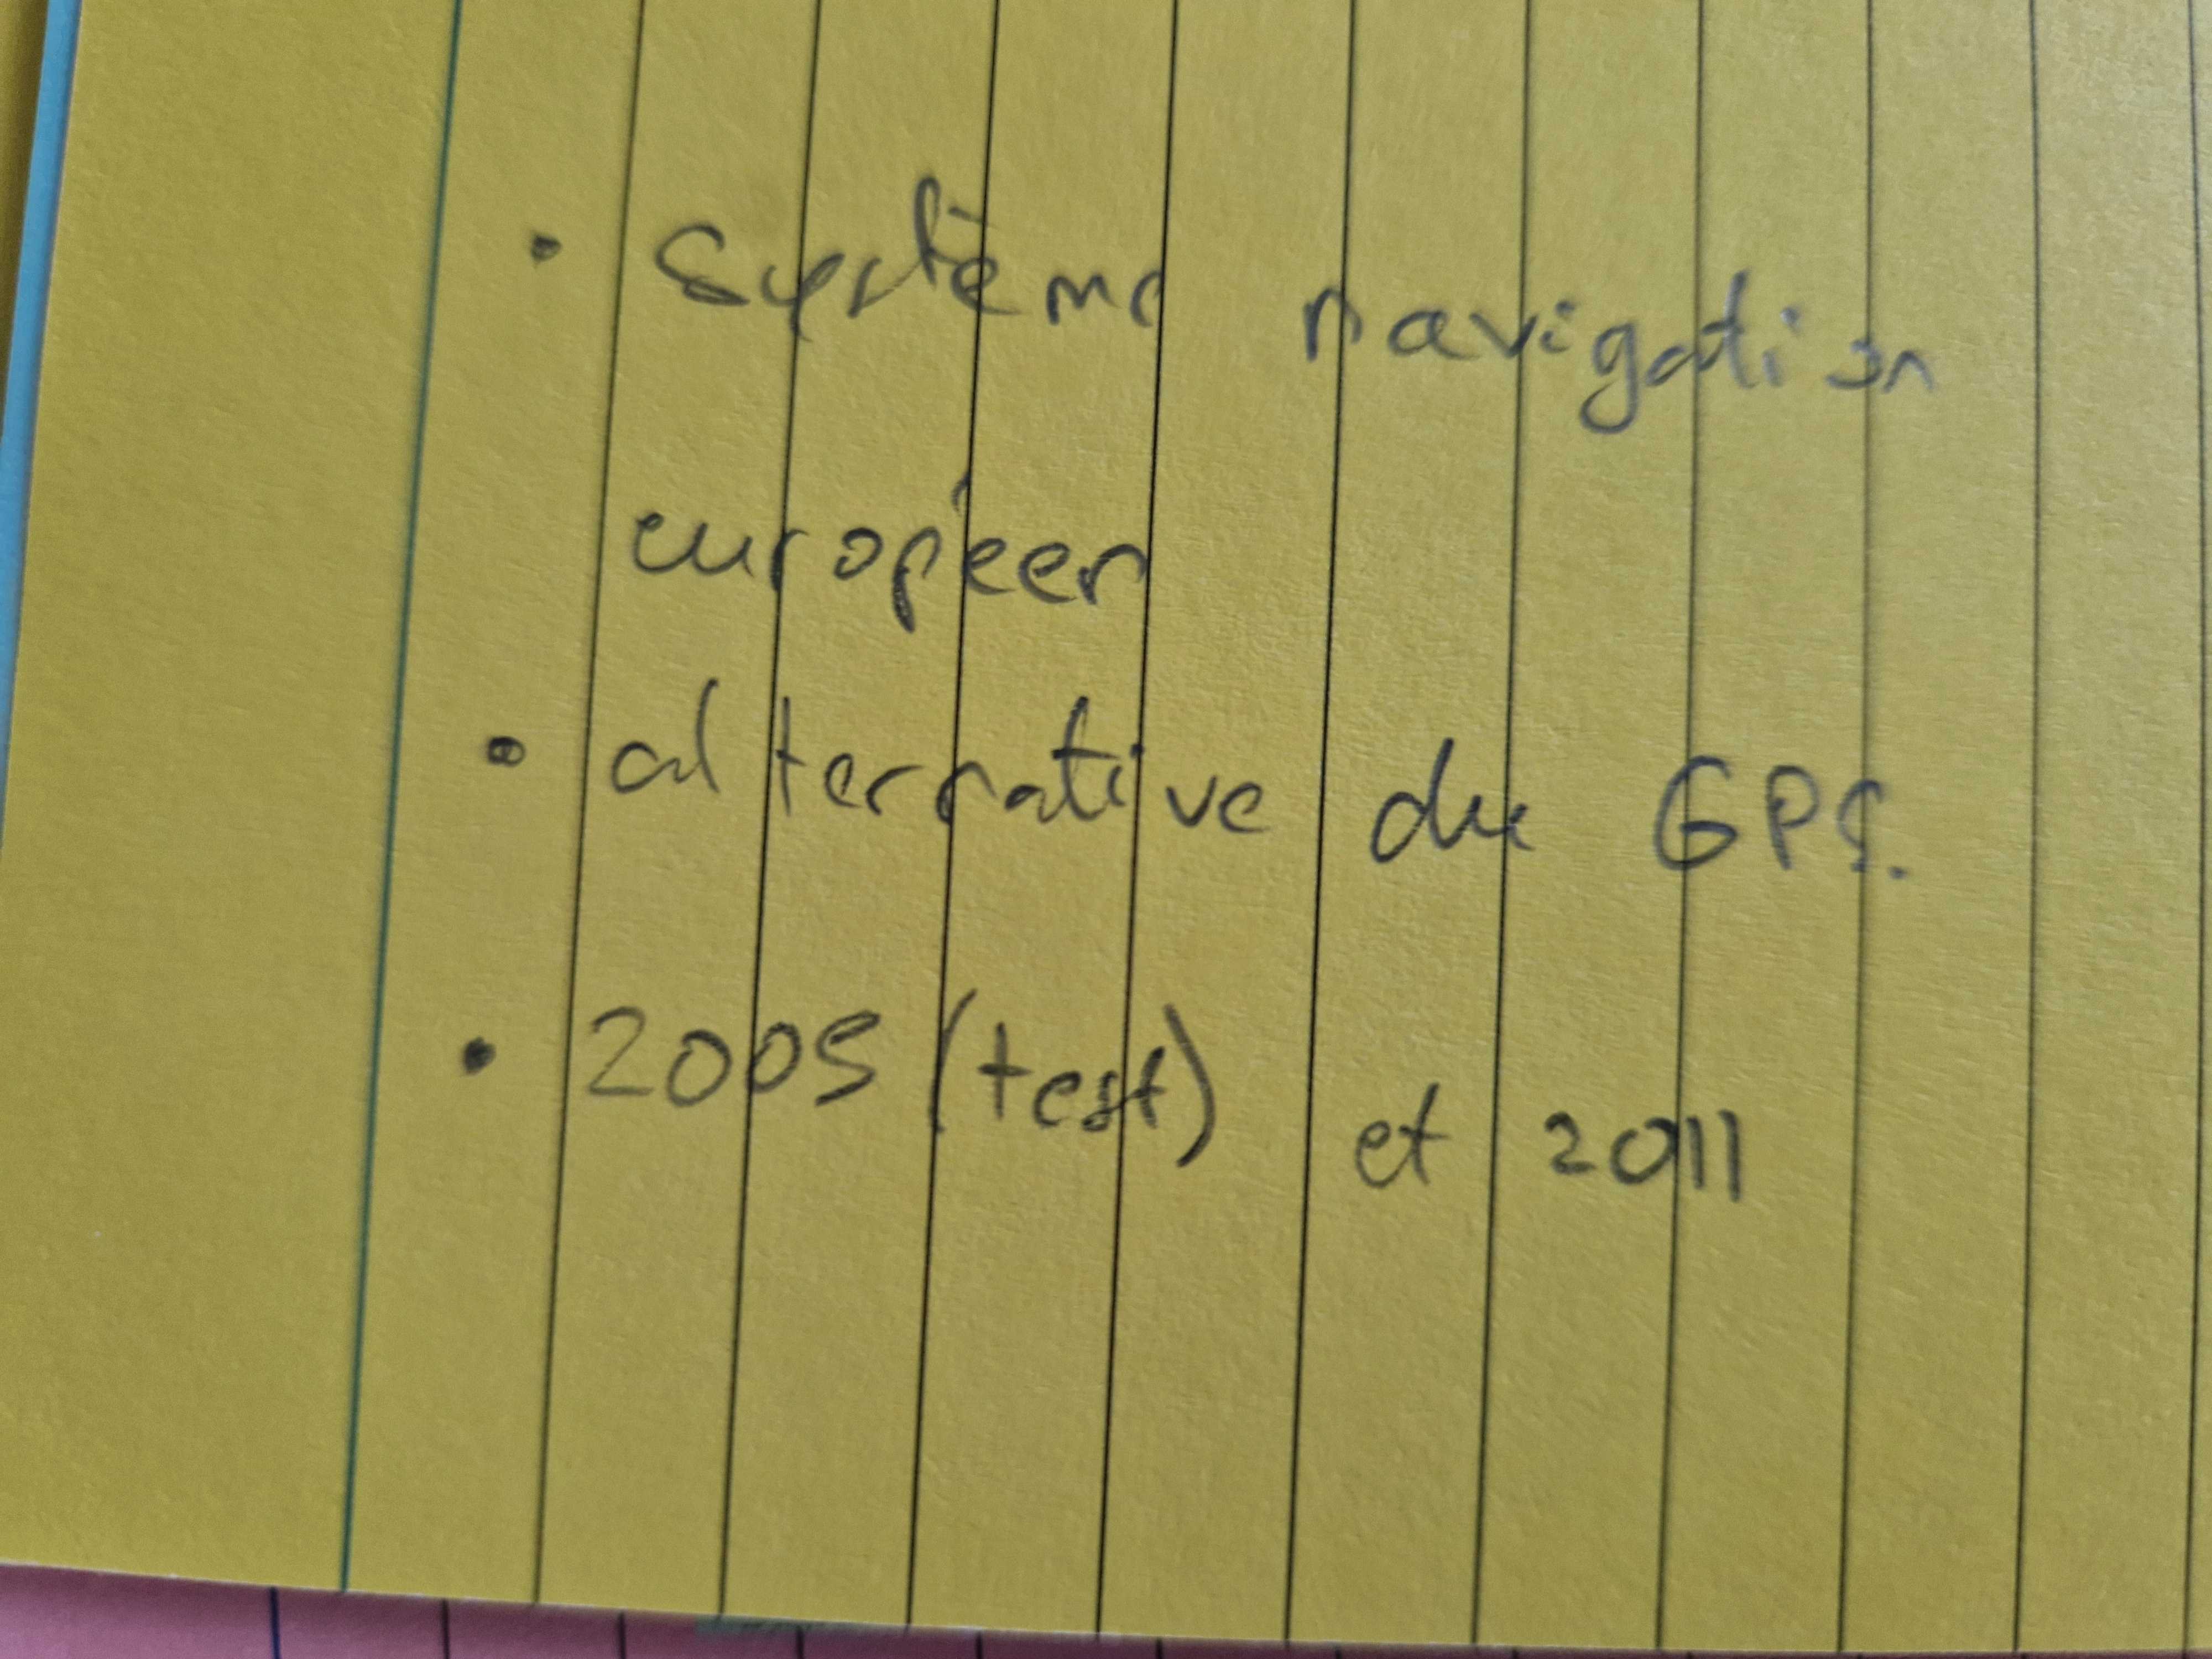 • Système navigation
européen
• alternative du GPS.
• 2005 (test) et 2011